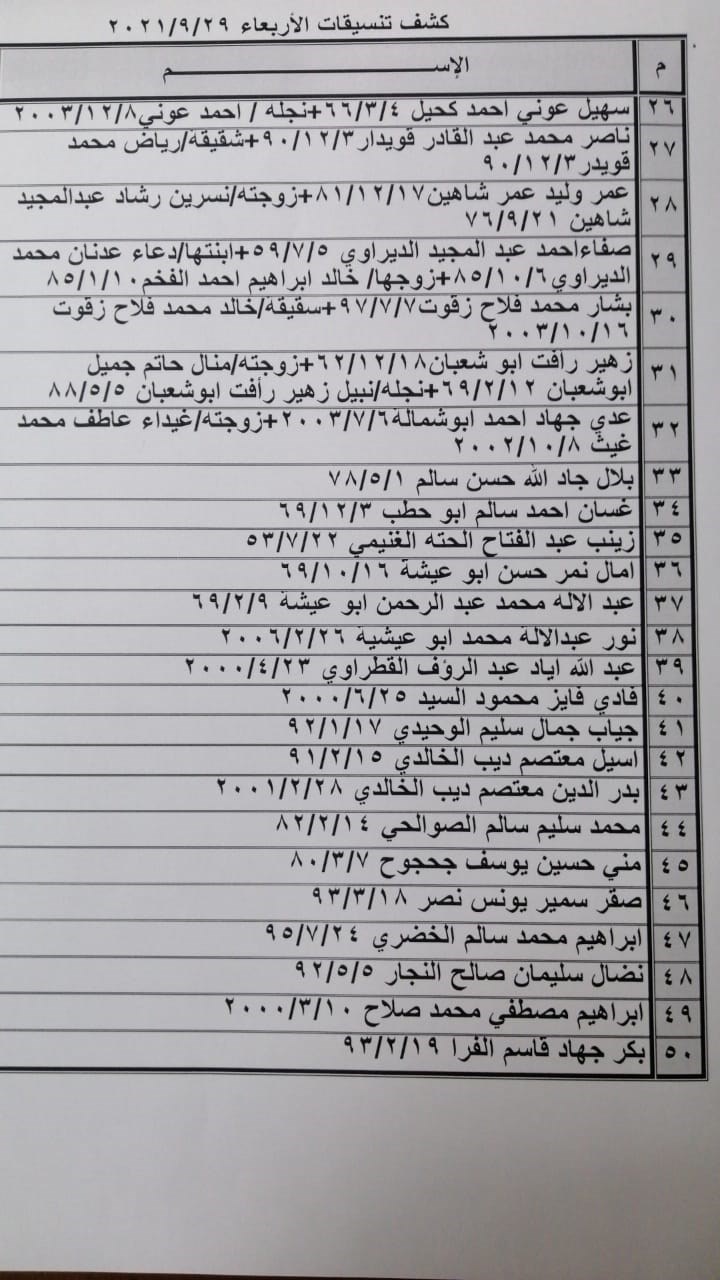 كشف تنسيقات الأربعاء ٢٠٢١/٩/٢٩
م الإســـــــــــــــــــــــــم
٢٦ سهيل عوني احمد كحيل ٦٦/٣/٤+نجله / احمد عوني٢٠٠٣/١٢/٨
٢٧ ناصر محمد عبد القادر قويدار٩٠/١٢/٣+شقيقة/رياض محمد
قويدر٩٠/١٢/٣
٢٨ عمر وليد عمر شاهين٨١/١٢/١٧+زوجته/نسرين رشاد عبدالمجيد
شاهين ٧٦/٩/٢١
٢٩ صفاءاحمد عبد المجيد الديراوي ٥٩/٧/٥+ابنتها/دعاء عدنان محمد
الديراوي٨٥/١٠/٦+زوجها/ خالد ابراهيم احمد الفخم٨٥/١/١٠
٣٠ بشار محمد فلاح زقوت٩٧/٧/٧+سقيقة/خالد محمد فلاح زقوت
٢٠٠٣/١٠/١٦
٣١ زهير رأفت ابو شعبان٦٢/١٢/١٨+زوجته/منال حاتم جميل
ابوشعبان ٦٩/٢/١٢+نجله/نبيل زهير رأفت ابوشعبان ٨٨/٥/٥
٣٢ عدي جهاد احمد ابوشمالة٢٠٠٣/٧/٦+زوجته/غيداء عاطف محمد
غيث ٢٠٠٢/١٠/٨
٣٣ بلال جاد الله حسن سالم ٧٨/٥/١
٣٤ غسان احمد سالم ابو حطب ٦٩/١٢/٣
٣٥ زينب عبد الفتاح الحته الغنيمي ٥٣/٧/٢٢
٣٦ امال نمر حسن ابو عيشة ٦٩/١٠/١٦
٣٧ عبد الاله محمد عبد الرحمن ابو عيشة ٦٩/٢/٩
٣٨ نور عبدالالة محمد ابو عيشية ٢٠٠٦/٢/٢٦
٣٩ عبد الله اياد عبد الرؤف القطراوي ٢٠٠٠/٤/٢٣
٤٠ فادي فايز محمود السيد ٢٠٠٠/٦/٢٥
٤١ جياب جمال سليم الوحيدي ٩٢/١/١٧
٤٢ اسيل معتصم ديب الخالدي ٩١/٢/١٥
٤٣ بدر الدين معتصم ديب الخالدي ٢٠٠١/٢/٢٨
٤٤ محمد سليم سالم الصوالحي ٨٢/٢/١٤
٤٥ مني حسين يوسف جحجوح ٨٠/٣/٧
٤٦ صقر سمير يونس نصر ٩٣/٣/١٨
٤٧ ابراهيم محمد سالم الخضري ٩٥/٧/٢٤
٤٨ نضال سليمان صالح النجار ٩٢/٥/٥
٤٩ ابراهيم مصطفي محمد صلاح ٢٠٠٠/٣/١٠
٥٠ بكر جهاد قاسم الفرا ٩٣/٢/١٩